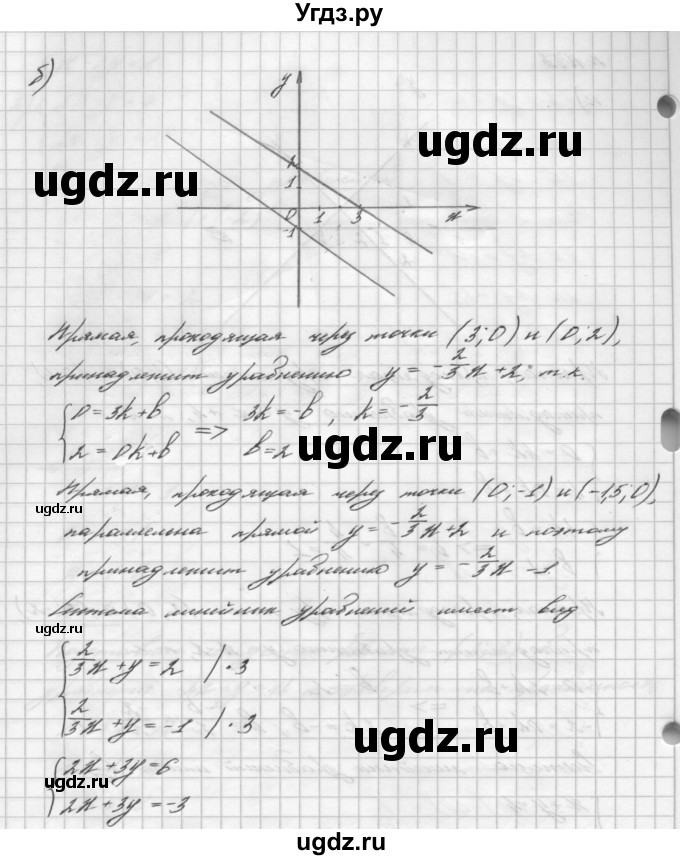 Угдз.ру
б)
y
ugdz.ru
ugdz.ru
2
1
0 1 3 x
-1
Прямая, проходящая через точки (3;0) и (0;2),
принадлежит уравнению y = -2/3 x + 2, т.к.
{ 0 = 3k + b => 3k = -b, k = -2/3
2 = 0k + b b = 2
ugdz.ru
Прямая, проходящая через точки (0;-1) и (-1,5;0),
ugdz.ru
параллельна прямой y = -2/3 x + 2 и поэтому
принадлежит уравнению y = -2/3 x - 1.
Система линейных уравнений имеет вид
ugdz.ru
{ 2/3 x + y = 2 | · 3
2/3 x + y = -1 | · 3
ugdz.ru
ugdz.ru
{ 2x + 3y = 6
2x + 3y = -3
ugdz.ru
ugdz.ru